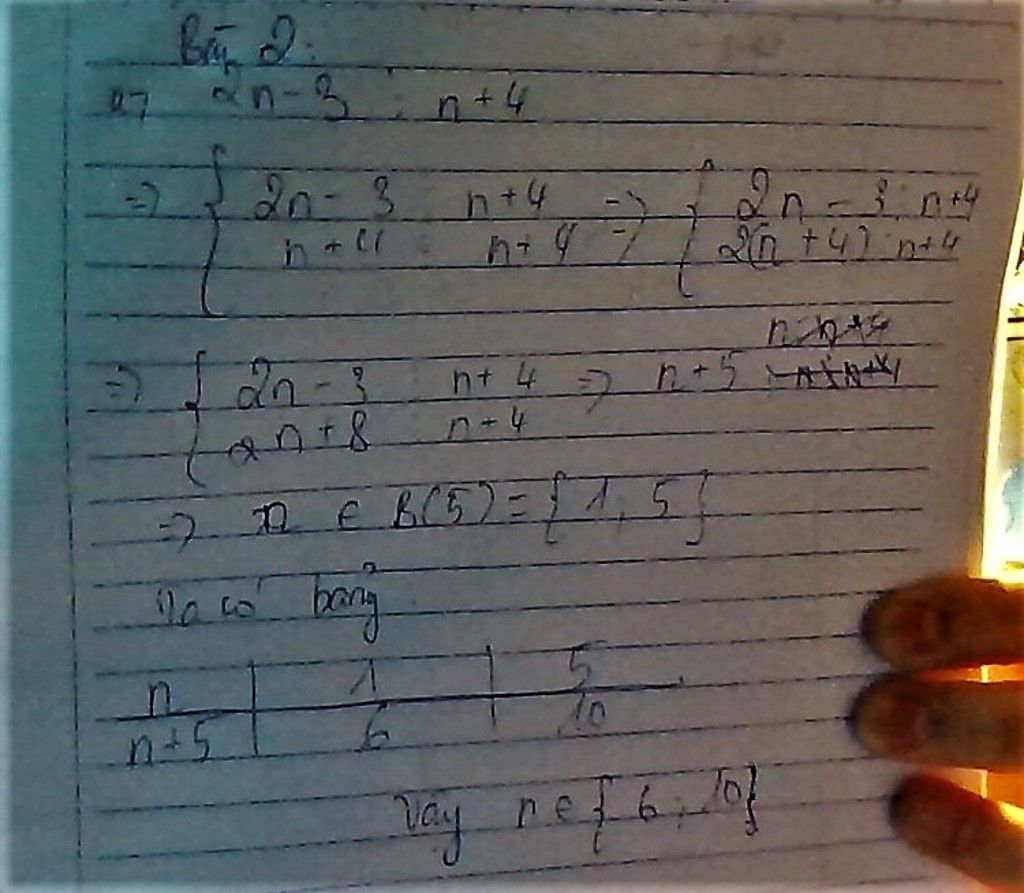 Bài 2:
a, 2n - 3 : n + 4
=> { 2n - 3 : n + 4 => { 2n - 3 : n + 4
n + 4 : n + 4 2(n + 4) : n + 4
=> { 2n - 3 : n + 4 => n + 5
2n + 8 : n + 4
=> n ∈ B(5) = { 1, 5 }
Ta có bảng
n | 1 | 5
n + 5 | 6 | 10
Vậy n ∈ { 6 ; 10 }